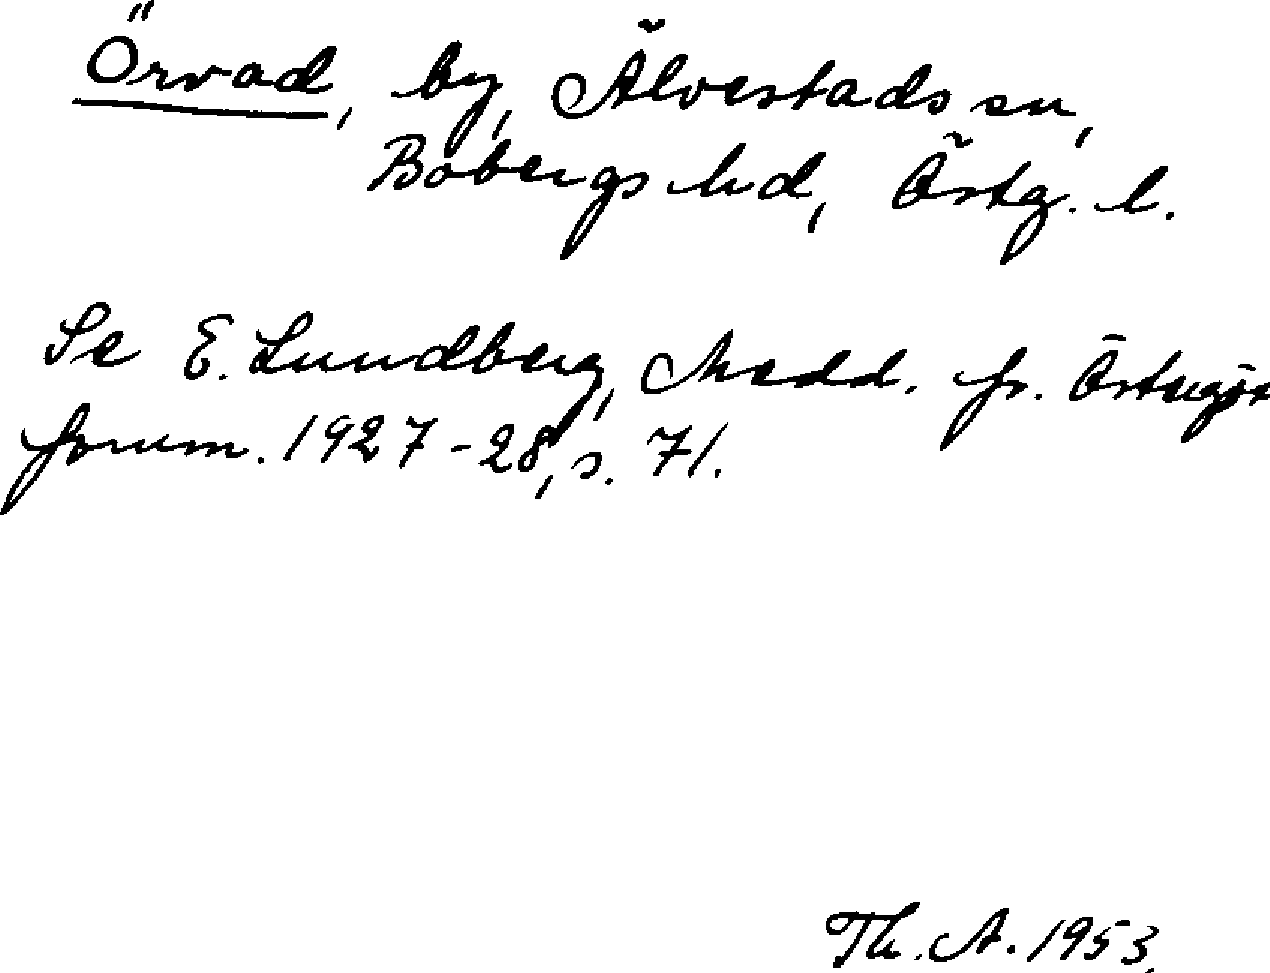 Örvad, by, Älvestads sn,
Bobergs hd, Östg. l.
Se E. Lundberg, Medd. fr. Östergöt
fornm. 1927-28, s. 71.
Th. A. 1953.